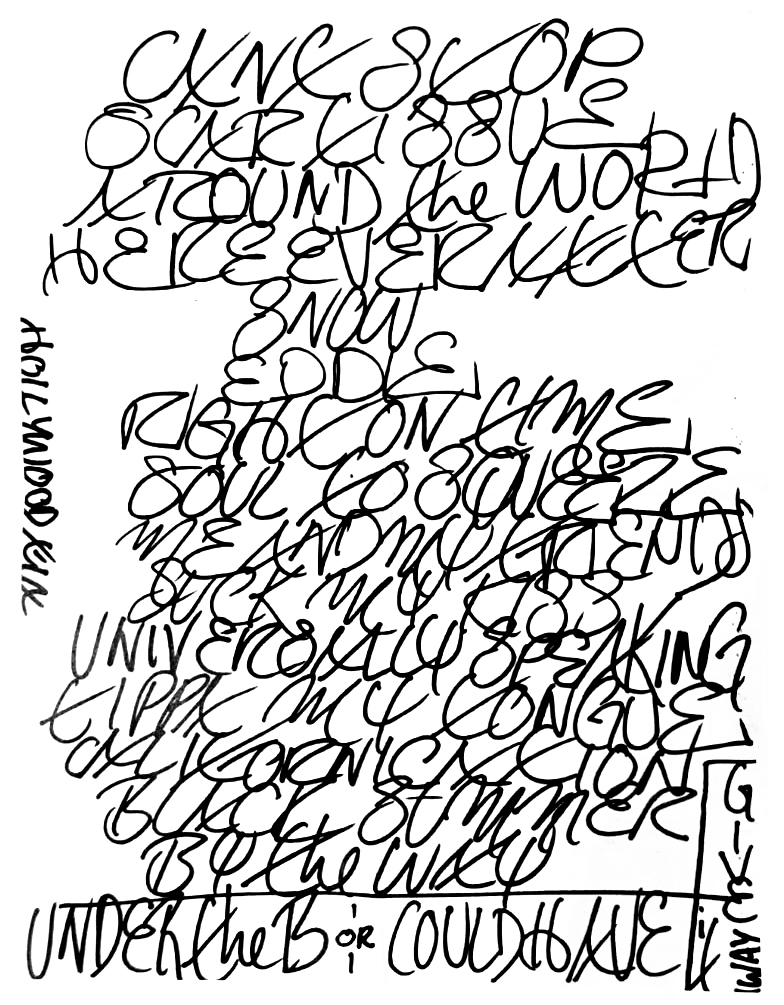 CANT STOP
SCAR TISSUE
AROUND the WORLD
HERE EVER AFTER
SNOW
EDDIE
RIGHT ON TIME
SOUL TO SQUEEZE
ME AND MY FRIENDS
SUCK MY KISS
UNIVERSALLY SPEAKING
TIPPA MY TONGUE
CALIFORNICATION
BLACK SUMMER
BY the WAY
UNDER the B OR COULD HAVE L
HOLLYWOOD